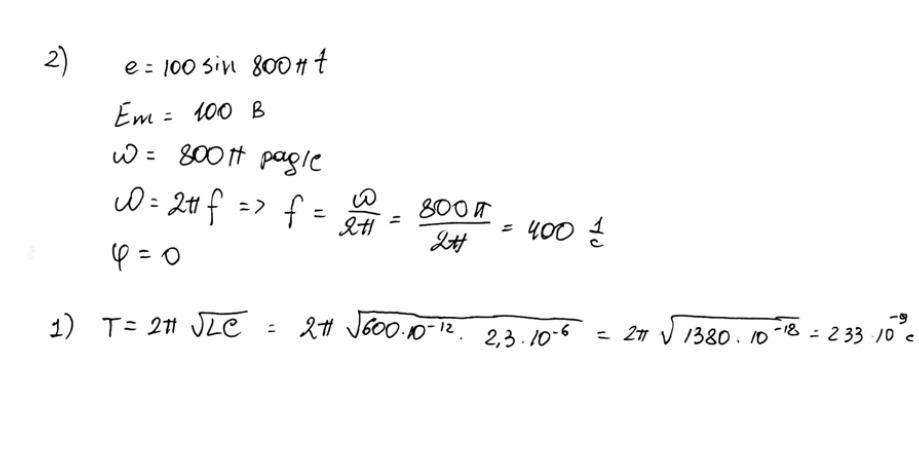 2) e = 100 sin 800π t
Em = 100 В
ω = 800π рад/с
ω = 2π f => f = ω/2π = 800π/2π = 400 1/с
φ = 0
1) T = 2π √LC = 2π √600·10⁻¹² · 2,3·10⁻⁶ = 2π √1380·10⁻¹⁸ = 233·10⁻⁹ с